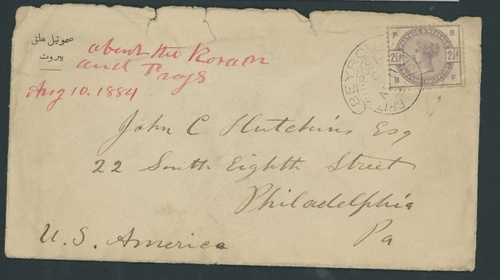 صموئيل هلق
بيروت
about the Koraen
and Trays
Aug 10. 1884
BEYROUT
BRIT
F P
2½ 2½
B F
John C Hutchins Esq
22 South Eighth Street
Philadelphia
Pa
U.S. America